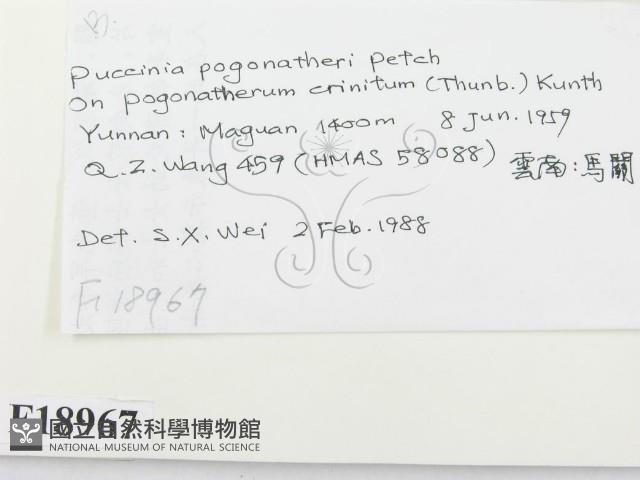 Puccinia pogonatheri Petch
On pogonatherum crinitum (Thunb.) Kunth
Yunnan: Maguan 1400m 8 Jun. 1959
Q.Z. Wang 459 (HMAS 58088) 雲南:馬關
Det. S.X. Wei 2 Feb. 1988
F18967
F18967
國立自然科學博物館
NATIONAL MUSEUM OF NATURAL SCIENCE